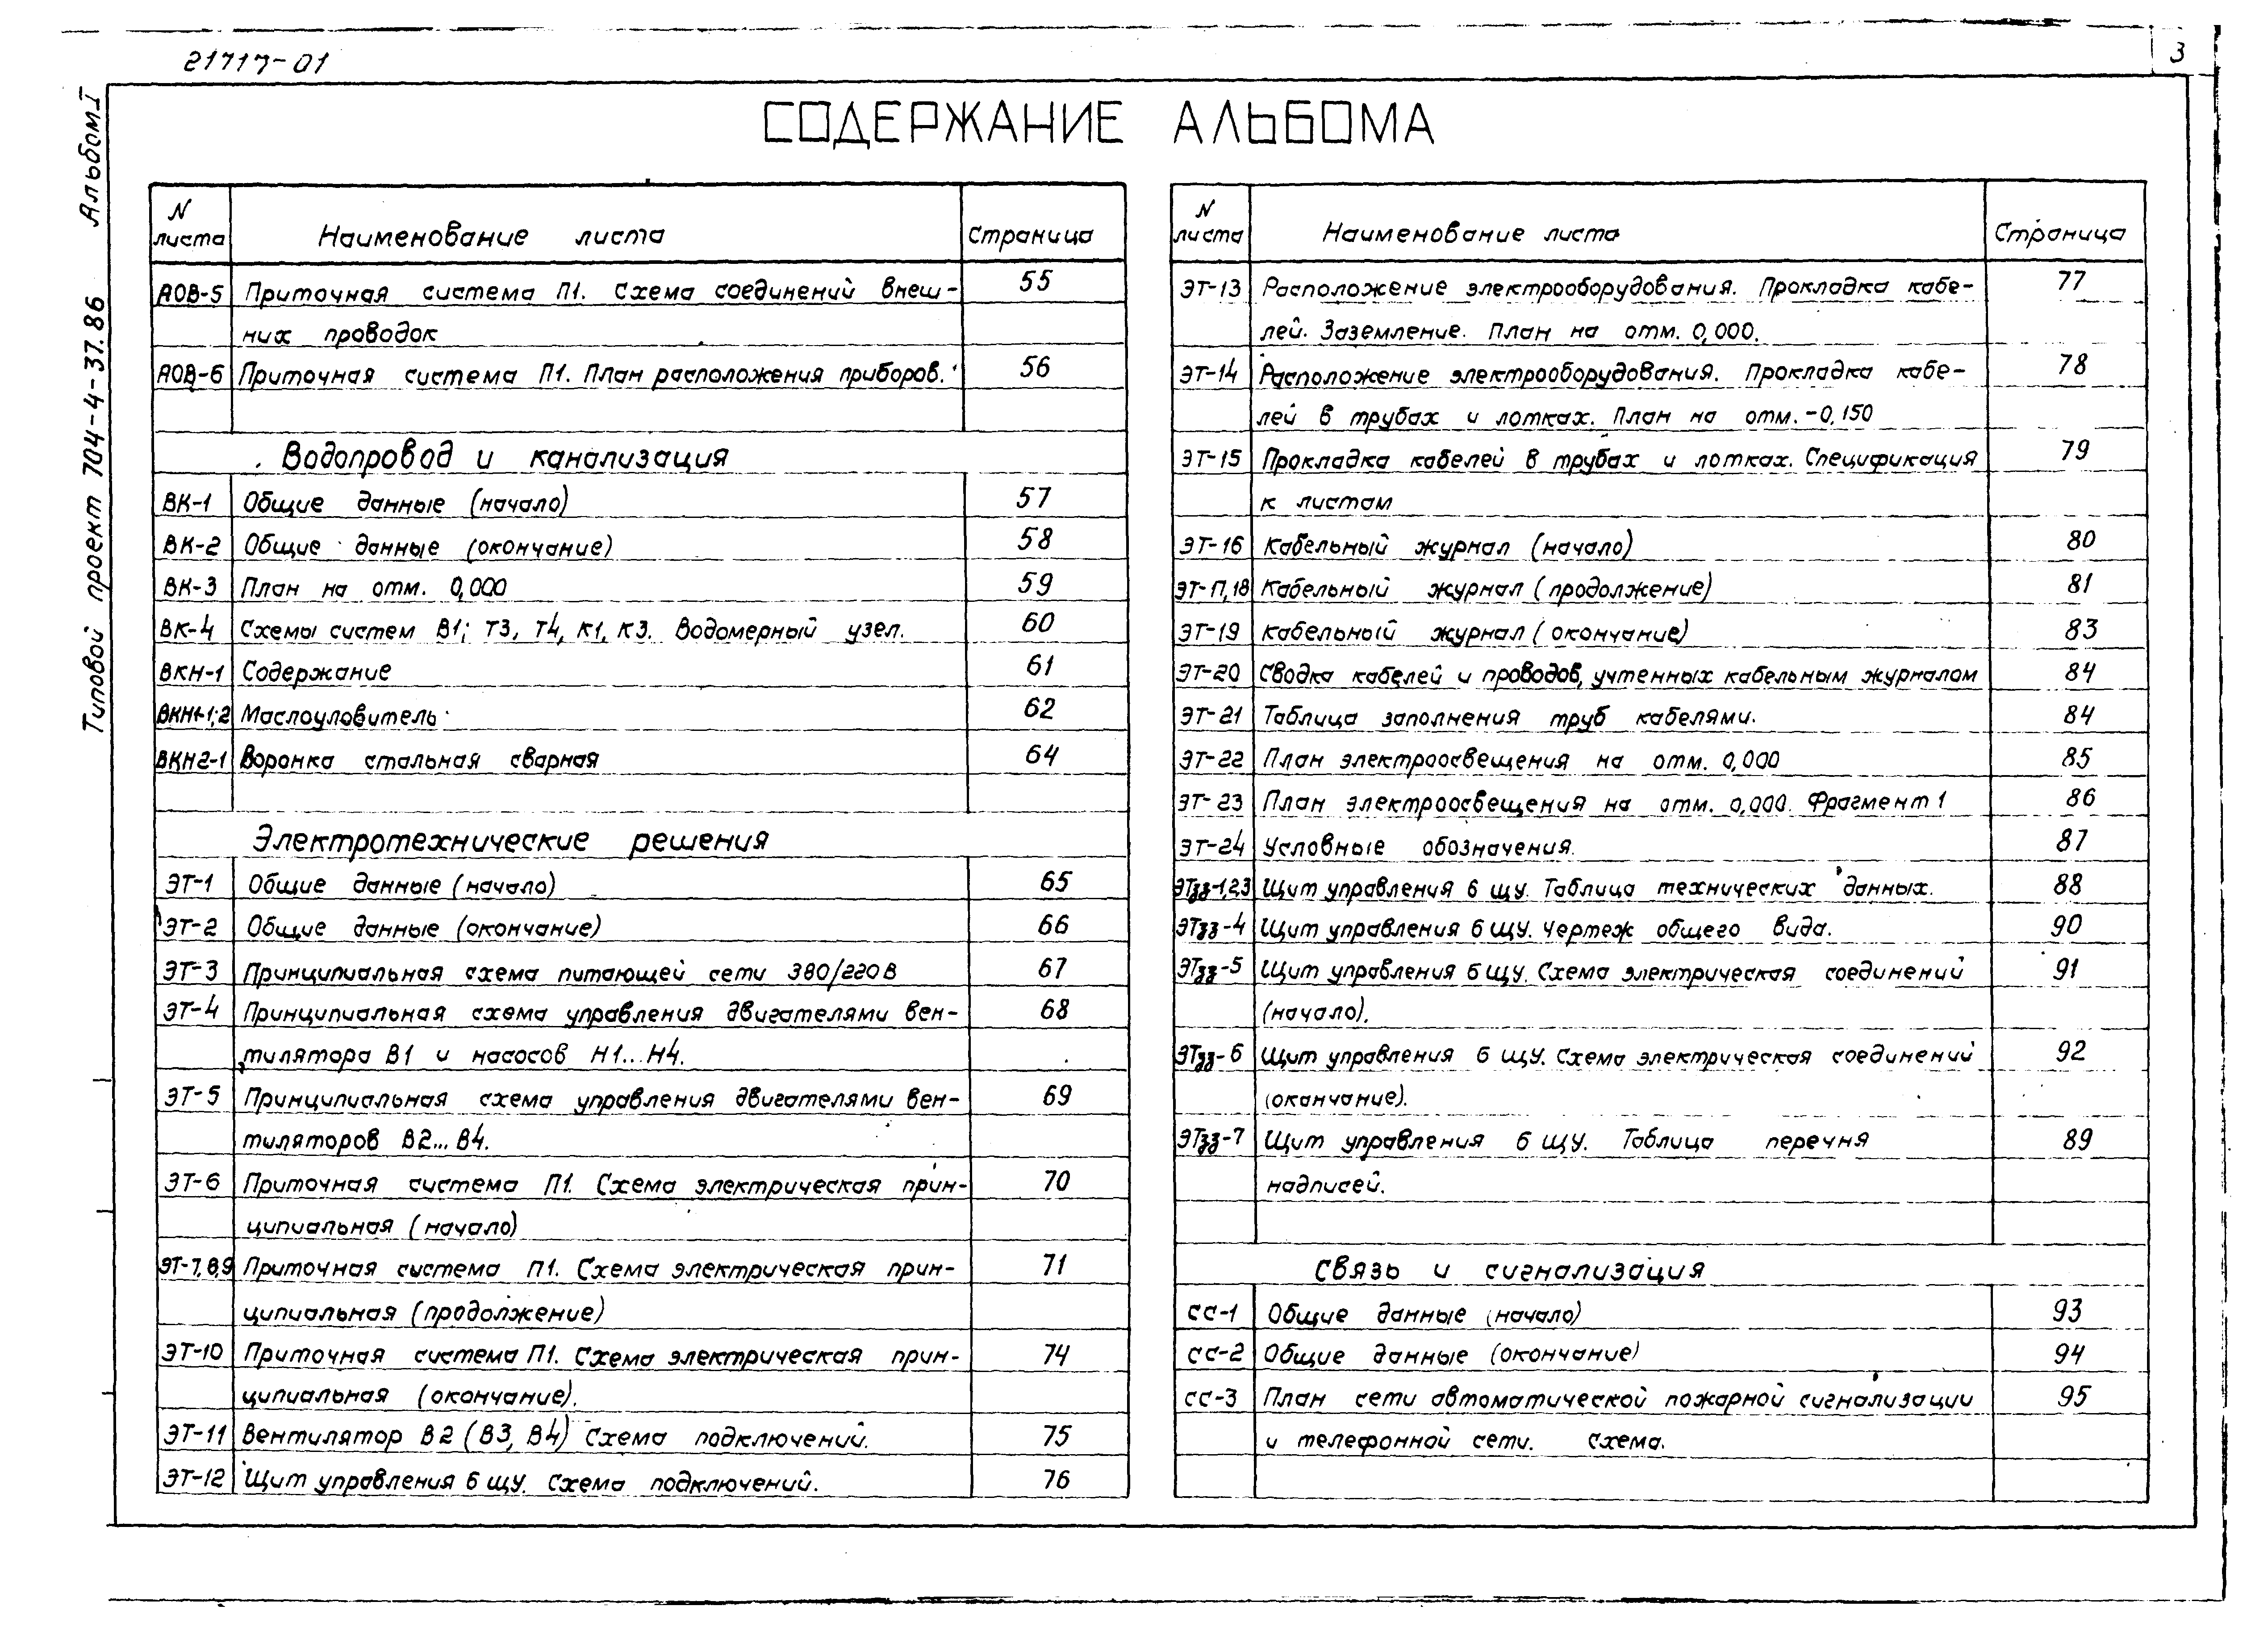 21717-01
3
Типовой проект 704-4-37.86 Альбом I
СОДЕРЖАНИЕ АЛЬБОМА
N листа Наименование листа Страница
АОВ-5 Приточная система П1. Схема соединений внеш- 55
них проводок
АОВ-6 Приточная система П1. План расположения приборов. 56
Водопровод и канализация
ВК-1 Общие данные (начало) 57
ВК-2 Общие данные (окончание) 58
ВК-3 План на отм. 0,000 59
ВК-4 Схемы систем В1; Т3, Т4, К1, К3. Водомерный узел. 60
ВКН-1 Содержание 61
ВКН1-1;2 Маслоуловитель 62
ВКН2-1 Воронка стальная сварная 64
Электротехнические решения
ЭТ-1 Общие данные (начало) 65
ЭТ-2 Общие данные (окончание) 66
ЭТ-3 Принципиальная схема питающей сети 380/220В 67
ЭТ-4 Принципиальная схема управления двигателями вен- 68
тилятора В1 и насосов Н1...Н4.
ЭТ-5 Принципиальная схема управления двигателями вен- 69
тиляторов В2...В4.
ЭТ-6 Приточная система П1. Схема электрическая прин- 70
ципиальная (начало)
ЭТ-7,8,9 Приточная система П1. Схема электрическая прин- 71
ципиальная (продолжение)
ЭТ-10 Приточная система П1. Схема электрическая прин- 74
ципиальная (окончание).
ЭТ-11 Вентилятор В2 (В3, В4) Схема подключений. 75
ЭТ-12 Щит управления 6 ЩУ. Схема подключений. 76
N листа Наименование листа Страница
ЭТ-13 Расположение электрооборудования. Прокладка кабе- 77
лей. Заземление. План на отм. 0,000.
ЭТ-14 Расположение электрооборудования. Прокладка кабе- 78
лей в трубах и лотках. План на отм. -0,150
ЭТ-15 Прокладка кабелей в трубах и лотках. Спецификация 79
к листам
ЭТ-16 Кабельный журнал (начало) 80
ЭТ-17,18 Кабельный журнал (продолжение) 81
ЭТ-19 Кабельный журнал (окончание) 83
ЭТ-20 Сводка кабелей и проводов, учтенных кабельным журналом 84
ЭТ-21 Таблица заполнения труб кабелями. 84
ЭТ-22 План электроосвещения на отм. 0,000 85
ЭТ-23 План электроосвещения на отм. 0,000. Фрагмент 1 86
ЭТ-24 Условные обозначения. 87
ЭТзз-1,2,3 Щит управления 6 ЩУ. Таблица технических данных. 88
ЭТзз-4 Щит управления 6 ЩУ. Чертеж общего вида. 90
ЭТзз-5 Щит управления 6 ЩУ. Схема электрическая соединений 91
(начало).
ЭТзз-6 Щит управления 6 ЩУ. Схема электрическая соединений 92
(окончание).
ЭТзз-7 Щит управления 6 ЩУ. Таблица перечня 89
надписей.
Связь и сигнализация
СС-1 Общие данные (начало) 93
СС-2 Общие данные (окончание) 94
СС-3 План сети автоматической пожарной сигнализации 95
и телефонной сети. Схема.